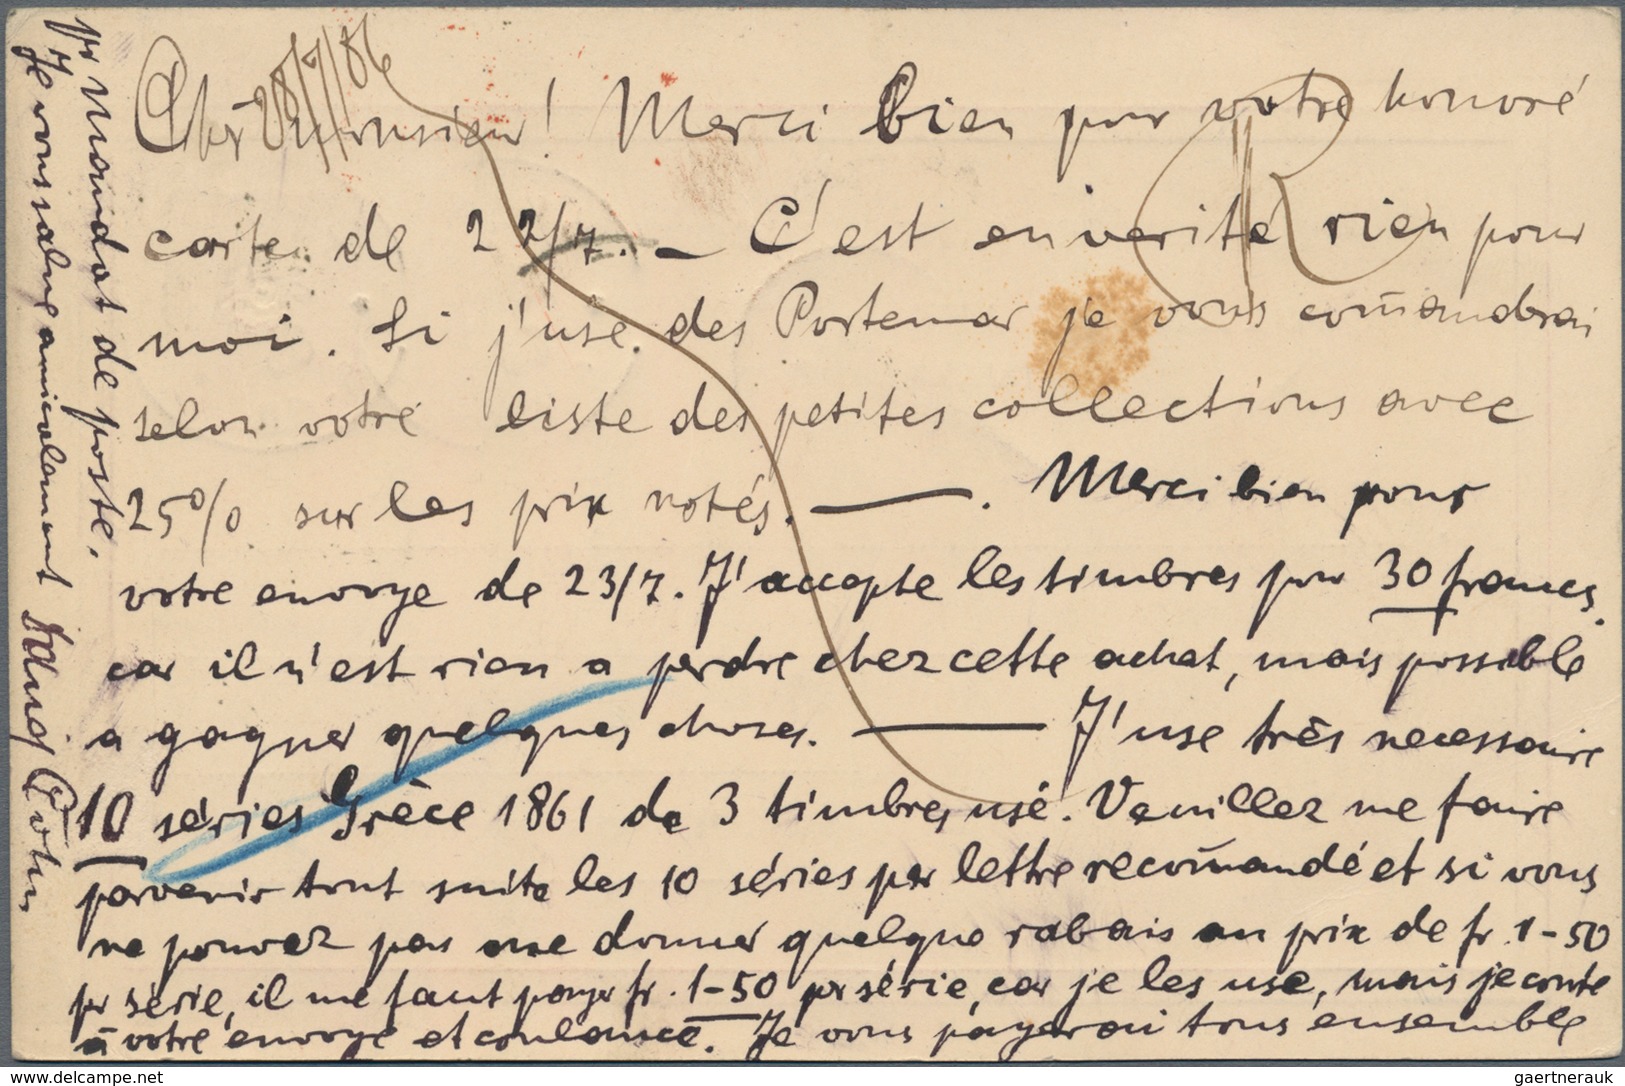 28/7/86
Cher Monsieur! Merci bien pour votre honoré
carte de 22/7. — C'est en verité rien pour
moi. Si j'use des Portemar je vous com̄andrai
selon votre liste des petites collections avec
25% sur les prix notés. — . Merci bien pour
votre envoye de 23/7. J'accepte les timbres pour 30 francs.
car il n'est rien a perdre chez cette achat, mais possible
a gagner quelques choses. — J'use très necessaire
10 séries Grèce 1861 de 3 timbres, usé. Veuillez me faire
parvenir tout suite les 10 séries par lettre recom̄andé et si vous
ne pouvez pas me donner quelque rabais au prix de fr. 1-50
pr série, il me faut payer fr. 1-50 pr série, car je les use, mais je conte
a votre envoye et coulance. Je vous payerai tous ensemble
pr Mandat de poste.
Je vous salue amicalement
gaertnerauk